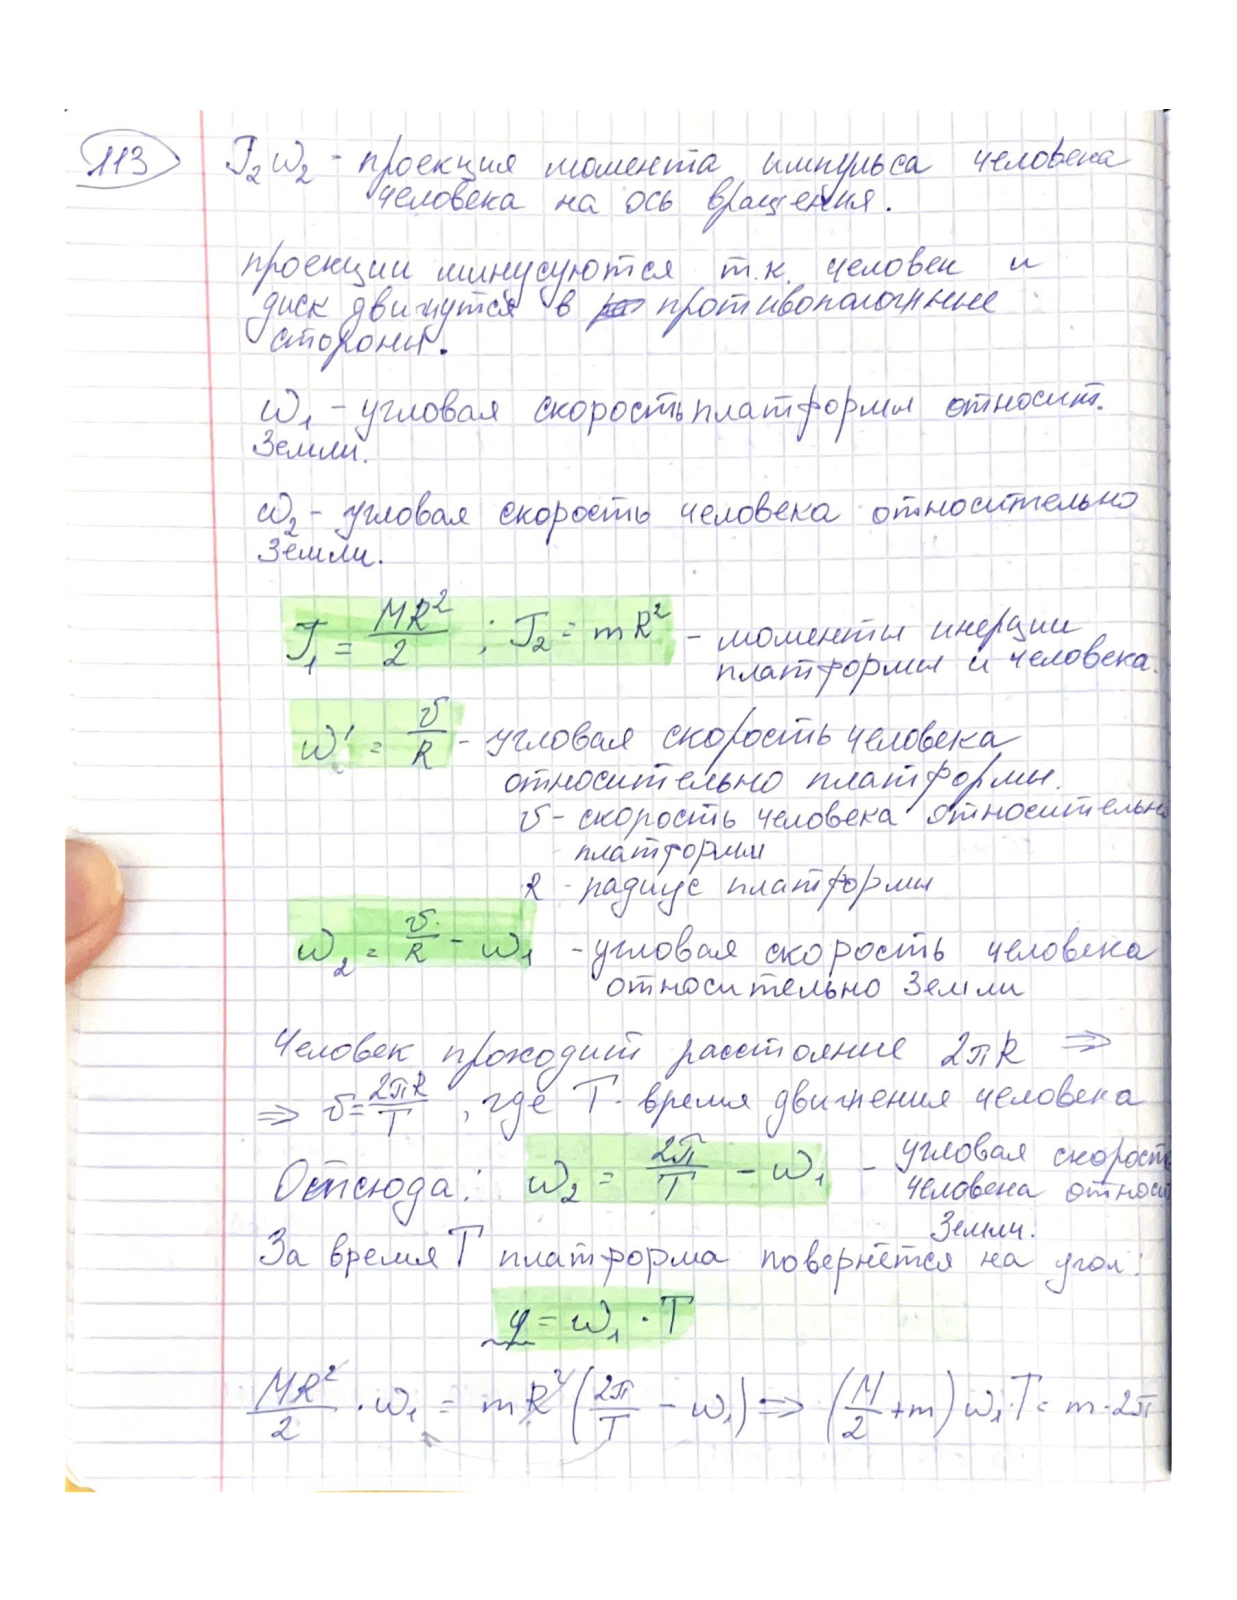 113
J₂ω₂ - проекция момента импульса человека
человека на ось вращения.
проекции минусуются т.к. человек и
диск двигутся в противоположные
стороны.
ω₁ - угловая скорость платформы относит.
Земли.
ω₂ - угловая скорость человека относительно
Земли.
J₁ = MR²/2 ; J₂ = mR² - моменты инерции
платформы и человека.
ω' = v/R - угловая скорость человека
относительно платформы.
v - скорость человека относительно
платформы
R - радиус платформы
ω₂ = v/R - ω₁ - угловая скорость человека
относительно Земли
Человек проходит расстояние 2πR ⇒
⇒ v = 2πR/T, где T - время движения человека
Отсюда: ω₂ = 2π/T - ω₁ - угловая скорость
человека относит
Земли.
За время T платформа повернётся на угол:
φ = ω₁ · T
MR²/2 · ω₁ = mR² (2π/T - ω₁) ⇒ (M/2 + m) ω₁·T = m·2π